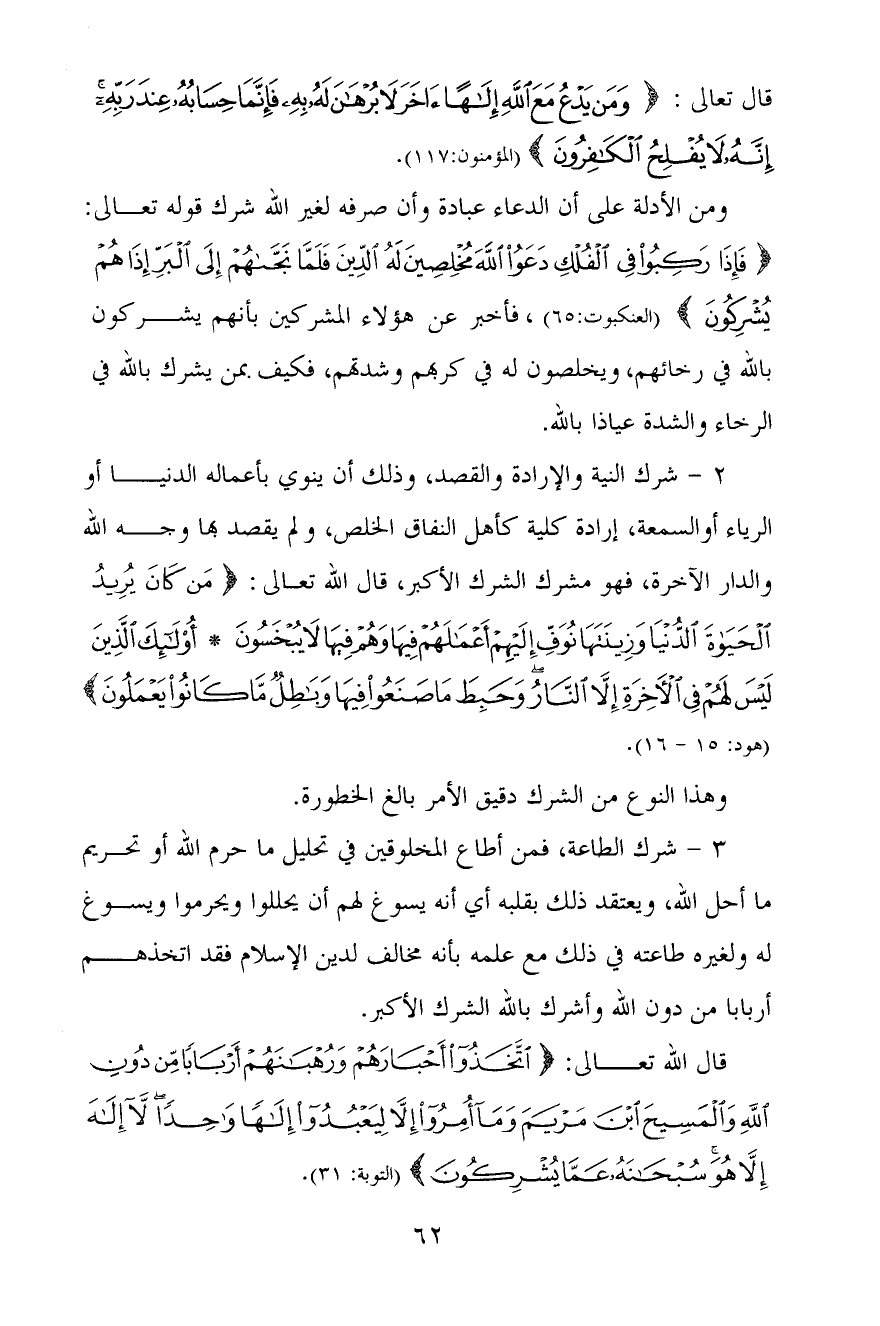 قال تعالى : ﴿ وَمَن يَدْعُ مَعَ ٱللَّهِ إِلَٰهًا ءَاخَرَ لَا بُرْهَٰنَ لَهُۥ بِهِۦ فَإِنَّمَا حِسَابُهُۥ عِندَ رَبِّهِۦٓ ۚ
إِنَّهُۥ لَا يُفْلِحُ ٱلْكَٰفِرُونَ ﴾ (المؤمنون:١١٧).
ومن الأدلة على أن الدعاء عبادة وأن صرفه لغير الله شرك قوله تعـــالى:
﴿ فَإِذَا رَكِبُوا۟ فِى ٱلْفُلْكِ دَعَوُا۟ ٱللَّهَ مُخْلِصِينَ لَهُ ٱلدِّينَ فَلَمَّا نَجَّىٰهُمْ إِلَى ٱلْبَرِّ إِذَا هُمْ
يُشْرِكُونَ ﴾ (العنكبوت:٦٥) ، فأخبر عن هؤلاء المشركين بأنهم يشـــركون
بالله في رخائهم، ويخلصون له في كربهم وشدتهم، فكيف بمن يشرك بالله في
الرخاء والشدة عياذا بالله.
٢ - شرك النية والإرادة والقصد، وذلك أن ينوي بأعماله الدنيـــــا أو
الرياء أوالسمعة، إرادة كلية كأهل النفاق الخلص، ولم يقصد بها وجـــه الله
والدار الآخرة، فهو مشرك الشرك الأكبر، قال الله تعـالى: ﴿ مَن كَانَ يُرِيدُ
ٱلْحَيَوٰةَ ٱلدُّنْيَا وَزِينَتَهَا نُوَفِّ إِلَيْهِمْ أَعْمَٰلَهُمْ فِيهَا وَهُمْ فِيهَا لَا يُبْخَسُونَ * أُو۟لَٰٓئِكَ ٱلَّذِينَ
لَيْسَ لَهُمْ فِى ٱلْأَخِرَةِ إِلَّا ٱلنَّارُ ۖ وَحَبِطَ مَا صَنَعُوا۟ فِيهَا وَبَٰطِلٌ مَّا كَانُوا۟ يَعْمَلُونَ ﴾
(هود: ١٥ - ١٦).
وهذا النوع من الشرك دقيق الأمر بالغ الخطورة.
٣ - شرك الطاعة، فمن أطاع المخلوقين في تحليل ما حرم الله أو تحـــريم
ما أحل الله، ويعتقد ذلك بقلبه أي أنه يسوغ لهم أن يحللوا ويحرموا ويســوغ
له ولغيره طاعته في ذلك مع علمه بأنه مخالف لدين الإسلام فقد اتخذهـــــم
أربابا من دون الله وأشرك بالله الشرك الأكبر.
قال الله تعــــالى: ﴿ ٱتَّخَذُوٓا۟ أَحْبَارَهُمْ وَرُهْبَٰنَهُمْ أَرْبَابًا مِّن دُونِ
ٱللَّهِ وَٱلْمَسِيحَ ٱبْنَ مَرْيَمَ وَمَآ أُمِرُوٓا۟ إِلَّا لِيَعْبُدُوٓا۟ إِلَٰهًا وَٰحِدًا ۖ لَّآ إِلَٰهَ
إِلَّا هُوَ ۚ سُبْحَٰنَهُۥ عَمَّا يُشْرِكُونَ ﴾ (التوبة: ٣١).
٦٢